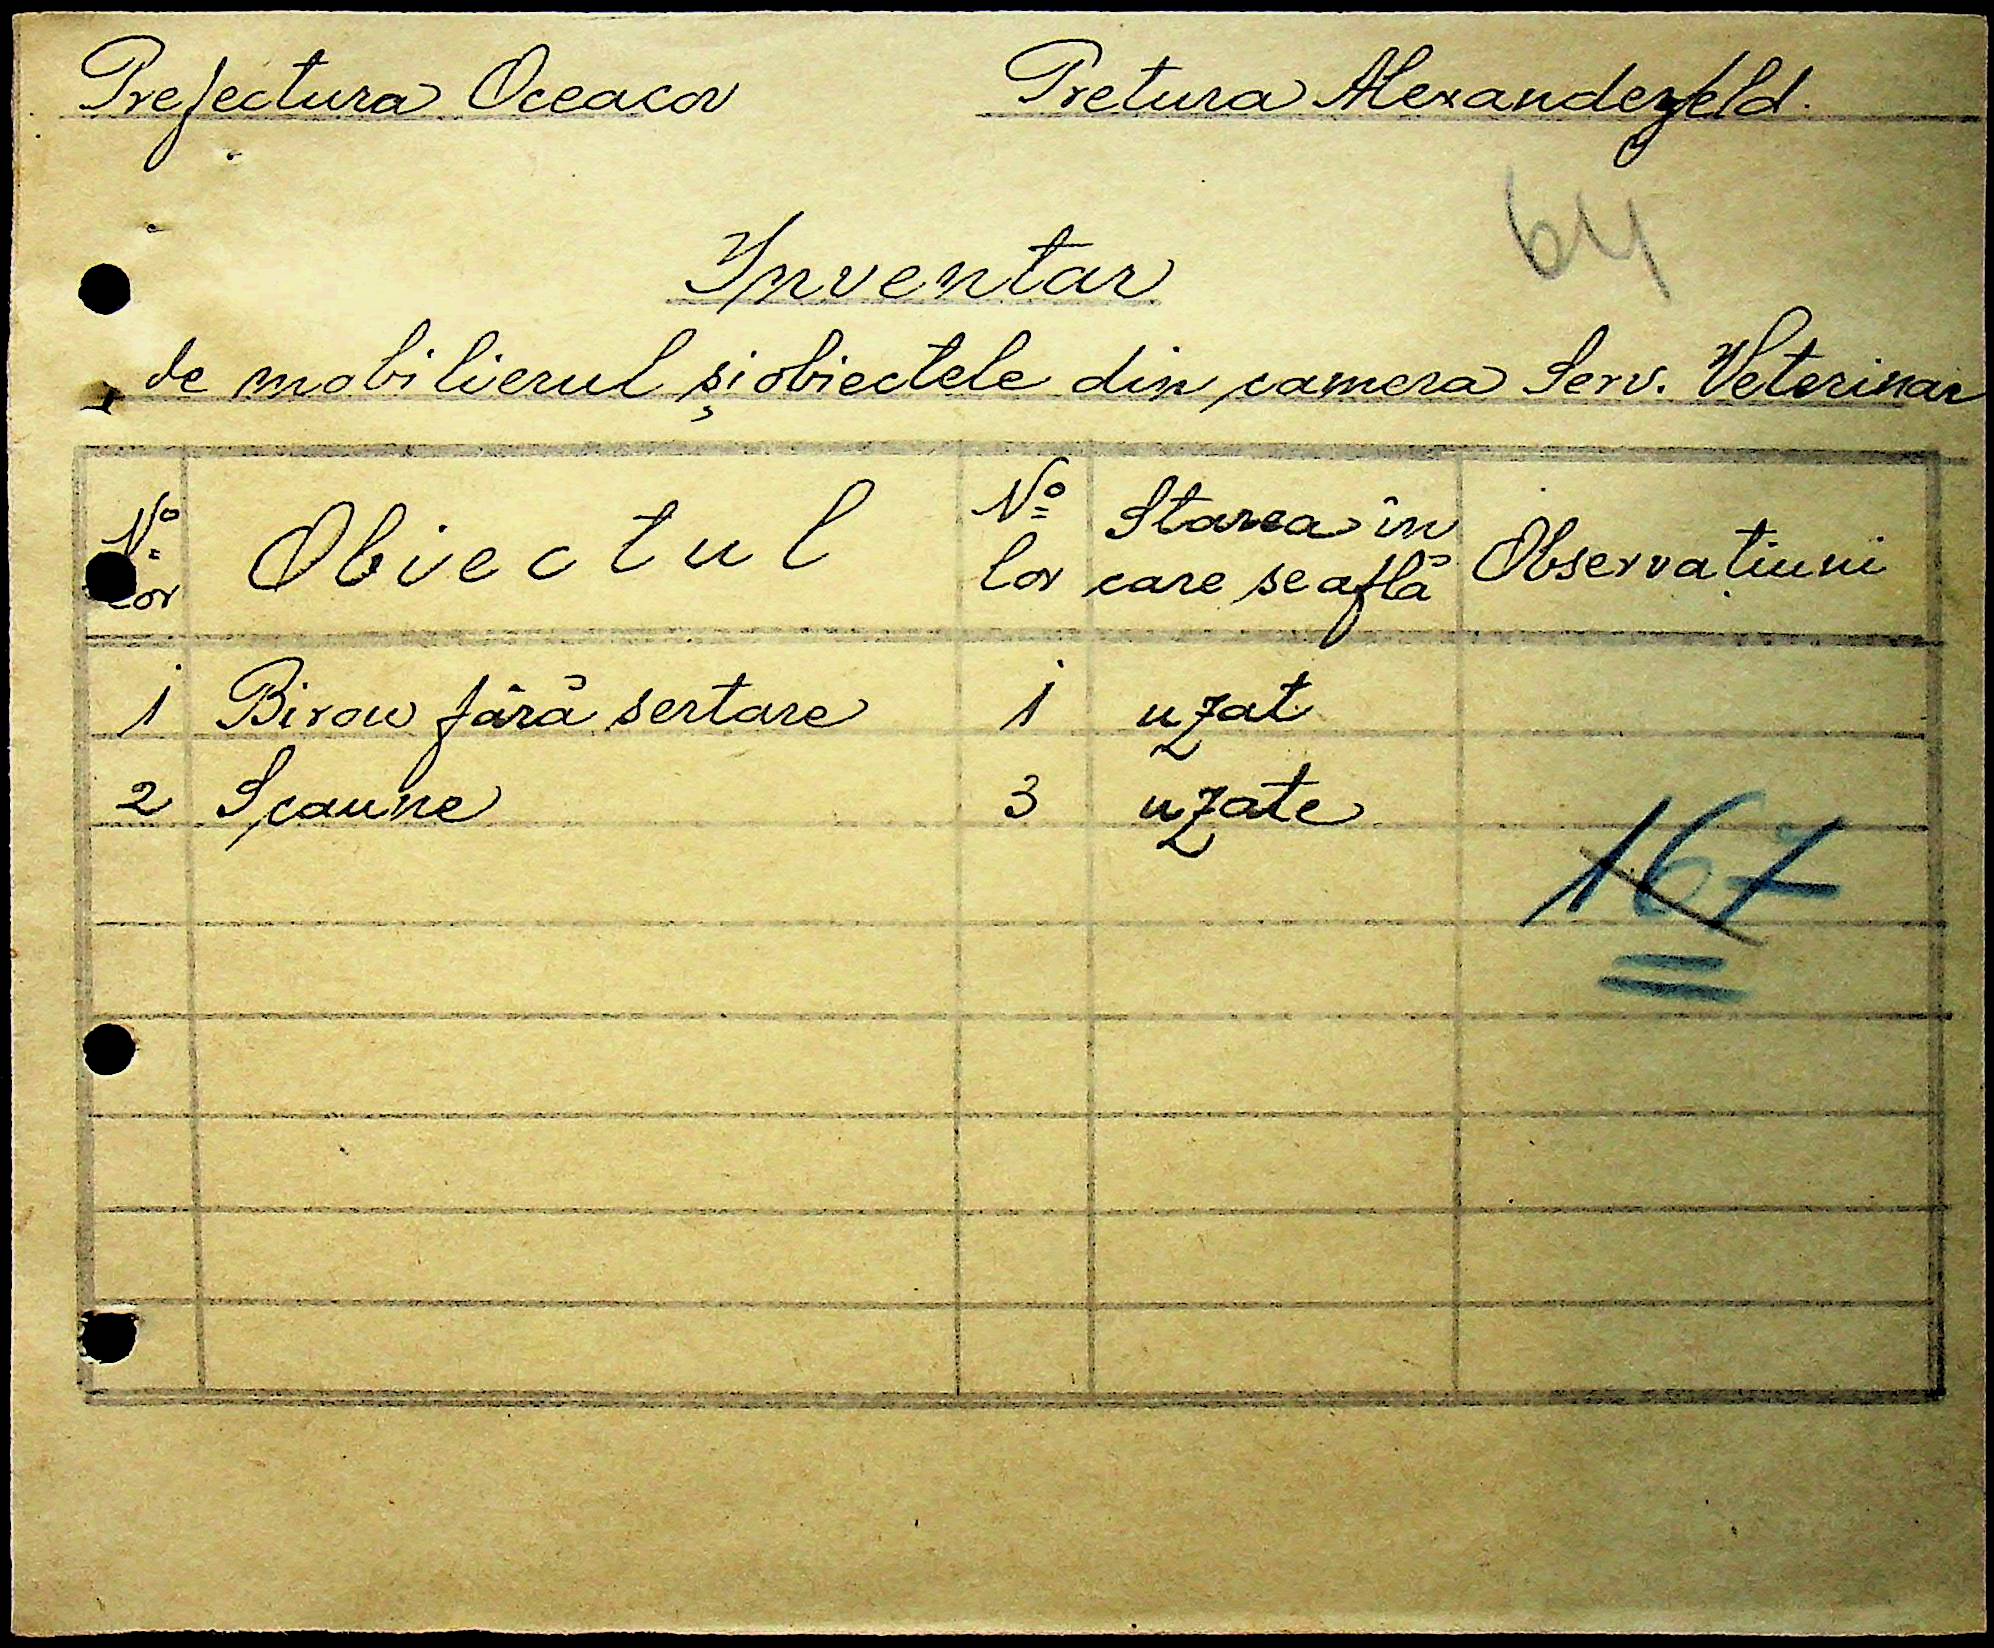 Prefectura Oceacov Pretura Alexanderfeld.
64
Inventar
de mobilierul și obiectele din camera Serv. Veterinar
Nº lor Obiectul Nº lor Starea în care se află Observațiuni
1 Birou fără sertare 1 uzat
2 Scaune 3 uzate
167